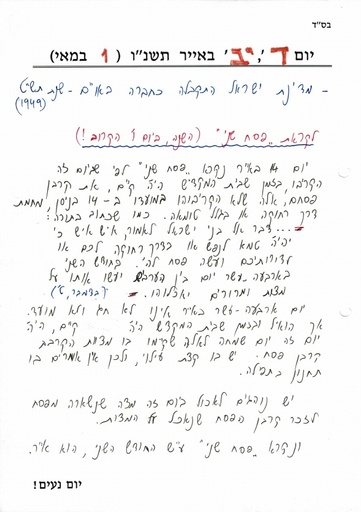 בס"ד
יום ד', י"ב באייר תשנ"ו (1 במאי)
- מדינת ישראל התקבלה כחברה באו"ם - שנת תש"ט
(1949)
לקראת "פסח שני" (השנה, ביום ו' הקרוב!)
יום 14 באייר נקרא "פסח שני" לפי שביום זה
הקריבו, בזמן שבית המקדש היה קים, את קרבן
פסחם, אלה שלא הקריבוהו במועדו ב-14 בניסן, מחמת
דרך רחוקה או בגלל טומאה. כמו שכתוב בתורה:
"...דבר אל בני ישראל לאמור, איש איש כי
יהיה טמא לנפש או בדרך רחוקה לכם או
לדורותיכם ועשה פסח לה'. בחודש השני
בארבעה עשר יום בין הערבים יעשו אותו על
מצות ומרורים יאכלוהו. (במדבר, ט')
יום ארבעה-עשר באייר אינו לא חג ולא מועד.
אך הואיל ובזמן שבית המקדש היה קים, היה
יום זה יום שמחה לאלה שקימו בו מצות הקרבת
קרבן פסח. יש בו קצת עילוי, ולכן אין אומרים בו
תחנון בתפילה.
יש נוהגים לאכול ביום זה מצה שנשארה מפסח
לזכר קרבן הפסח שנאכל על המצות.
ונקרא "פסח שני" ע"ש החודש השני, הוא אייר.
יום נעים!